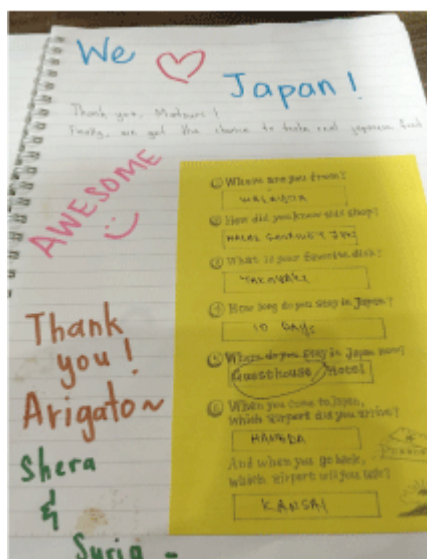 We ♡
Japan!
Thank you, Matsuri!
Finally, we get the chance to taste real japanese food
AWESOME
① Where are you from?
MALAYSIA
② How did you know this shop?
HALAL GOURMET JAPAN
③ What is your favorite dish?
TAKOYAKI
④ How long do you stay in Japan?
10 DAYS
⑤ Where do you stay in Japan now?
Guesthouse / Hotel
⑥ When you come to Japan,
which airport did you arrive?
HANEDA
And when you go back,
which airport will you use?
KANSAI
Thank
you!
Arigato~
Shera
&
Suria -